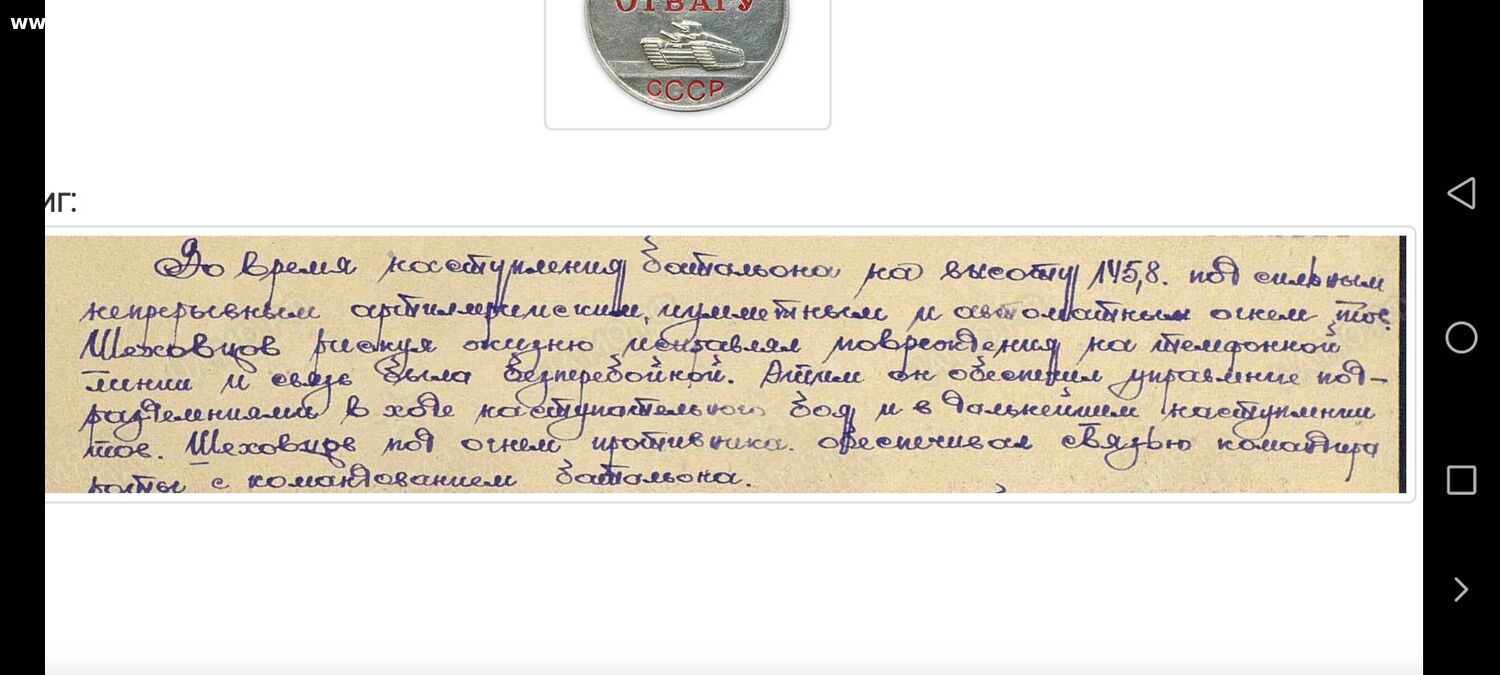 ww
ОТВАГУ
СССР
иг:
Во время наступления батальона на высоту 145,8. под сильным
непрерывным артиллерийским, пулеметным и автоматным огнем тов.
Шеховцов рискуя жизнью исправлял повреждения на телефонной
линии и связь была безперебойной. Этим он обеспечил управление под-
разделениями в ходе наступательного боя и в дальнейшем наступлении
тов. Шеховцов под огнем противника. обеспечивал связью командира
роты с командованием батальона.